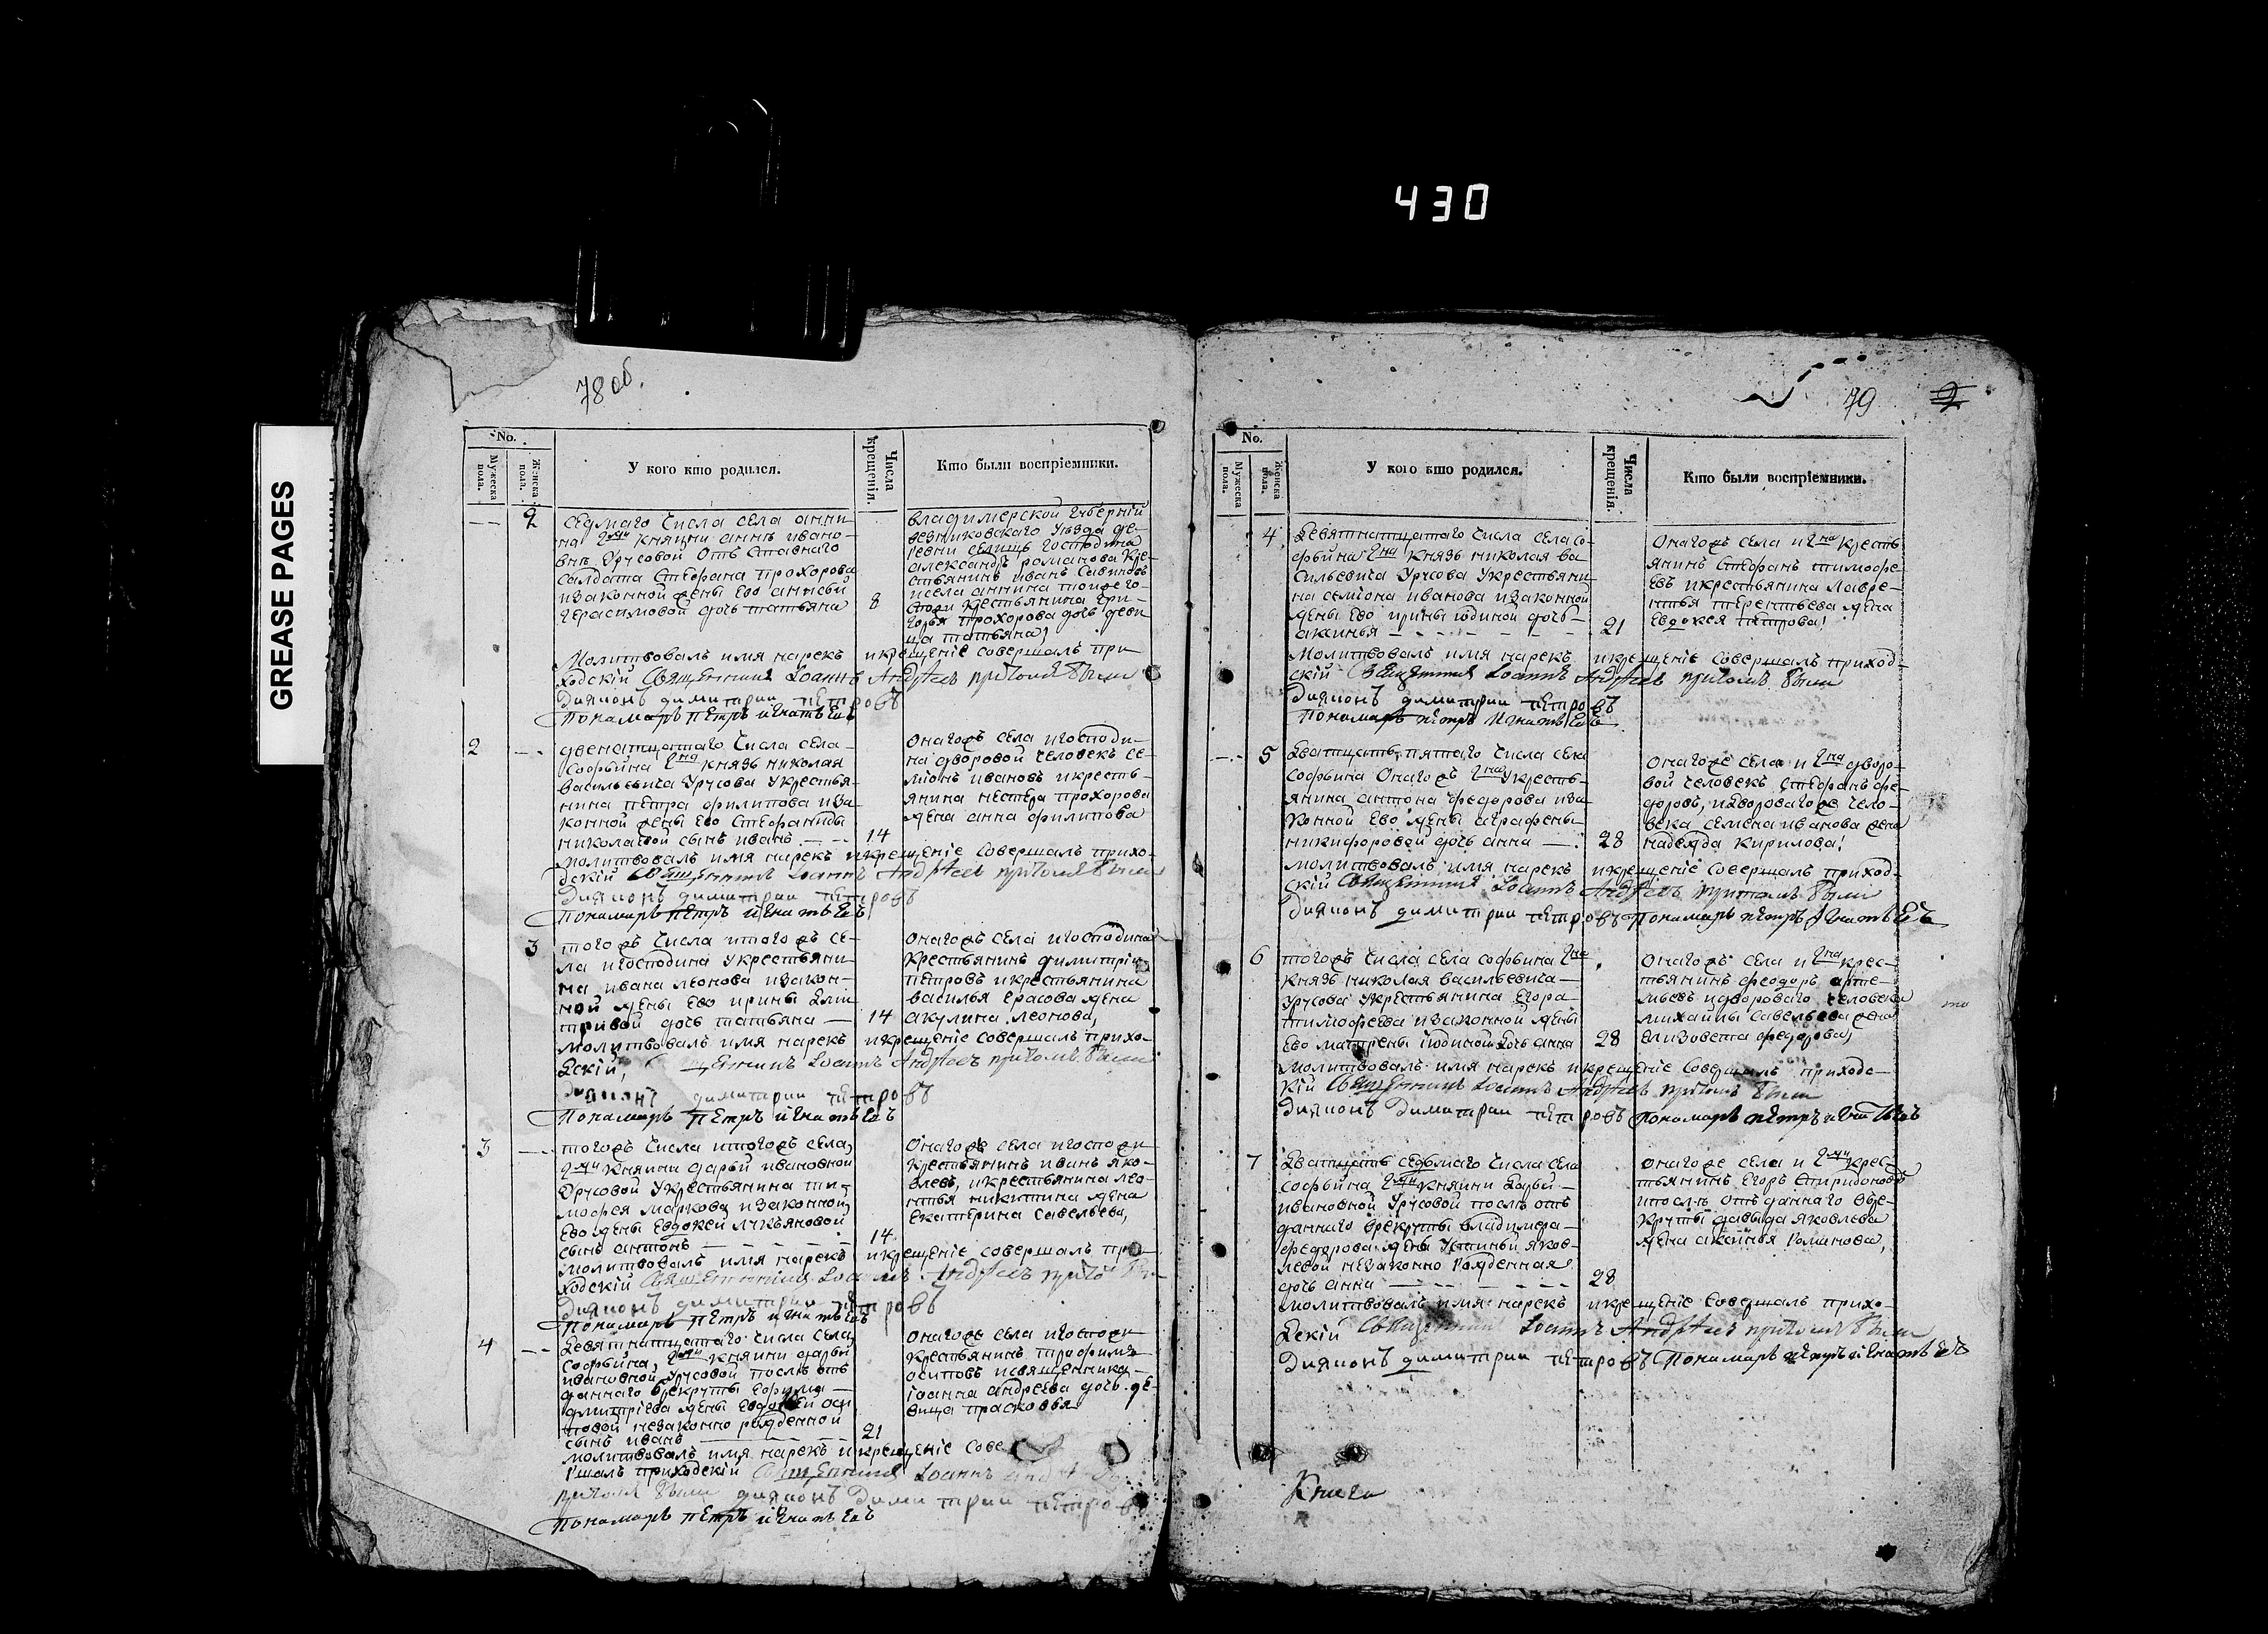 430
GREASE PAGES
78 об.
No.
Мужеска пола.
Женска пола.
У кого кто родился.
Числа крещенія.
Кто были воспріемники.
2
седмаго числа села анни-
на гжи княини анны ивано-
вны Урусовой Отъ Ставнаго
салдата Стефана прохорова
изаконной жены Его
герасимовой дочь татьяна
8
владимерской Губерній
вязниковскаго Уезда де-
ревни селищъ господина
александръ романова кре-
стьянинъ иванъ Савиновъ
исела аннина тоиже го-
спожи крестьянина гри-
горья прохорова дочь деви
ца татьяна,
Молитвовалъ имя нарекъ икрещеніе совершалъ при
ходскій Священникъ Іоаннъ Андреевъ причомъ были
Диякон димитрии петровъ
Пономарь петръ игнатьевъ
2
двенатцатаго числа села
Софьина гна князь николая
васильевича Урусова Укрестья-
нина петра филипова иза
конной жены Его Стефаниды
николаевой сынъ иванъ
14
Онагожъ села игосподи-
на дворовой человекъ се-
міонъ ивановъ икресть-
янина нестера прохорова
жена анна филипова
молитвовалъ имя нарекъ икрещеніе Совершалъ прихо-
дскій Священникъ Іоаннъ Андреевъ причомъ были
Диякон димитрии петровъ
Пономарь петръ игнатьевъ
3
тогожъ числа итогожъ се-
ла игосподина Укрестьяни
на ивана леонова изакон-
ной жены Его ирины дми
тривой дочь татьяна
14
Онагожъ села игосподина
крестьянинъ димитрій
петровъ икрестьянина
василья Ерасова жена
акулина леонова,
молитвовалъ имя нарекъ икрещеніе совершалъ прихо-
дскій, Іоаннъ Андреевъ причомъ были
димитрии петровъ
Пономарь петръ игнатьевъ
3
тогожъ числа итогожъ села,
гжи княини дарьи ивановной
Урусовой Укрестьянина ти-
мофея маркова изаконной,
Его жены Евдокеи лукьяновой
сынъ антонъ
14
Онагожъ села игоспожи
крестьянинъ иванъ яко-
влевъ, икрестьянина лео-
нтья никитина жена
Екатерина савельева,
молитвовалъ имя нарекъ икрещеніе совершалъ при
ходскій Священникъ Іоаннъ Андреевъ
Диякон димитрии петровъ
Пономарь петръ игнатьевъ
4
Девятнатцатаго числа села
Софьина, гжи княини дарьи
ивановной Урусовой послѣ отъ
даннаго врекруты Ефима
дмитріева жены Евдокеи оси
повой незаконно рожденной
сынъ иванъ
21
Онагоже села игоспожи
крестьянинъ трофимъ
осиповъ исвященника
іоанна андреева дочь де-
вица прасковья
молитвовалъ имя нарекъ икрещеніе Сове
ршалъ приходскій Священникъ Іоаннъ
причомъ были диякон димитрии петровъ
Пономарь петръ игнатьевъ
79
2
No.
Мужеска пола.
Женска пола.
У кого кто родился.
Числа крещенія.
Кто были воспріемники.
4
Девятнатцатаго числа села со-
фьина гна Князь николая ва
сильевича Урусова Укрестьяни-
на семіона иванова изаконной
жены Его ирины юдиной дочь
аксинья
21
Онагожъ села и гна кресть
янинъ Стефанъ тимофе
евъ икрестьянина Лавре-
нтья терентьева жена
Евдокея петрова,
Молитвовалъ имя нарекъ икрещеніе Совершалъ приход-
скій Священникъ Іоаннъ Андреевъ причомъ были
Диякон димитрии петровъ
Пономарь петръ игнатьевъ
5
Дватцать пятаго числа села
Софьина Онагожъ гна Укресть-
янина антона федорова иза
конной Его жены аграфены
никифоровой дочь анна
28
Онагоже села и гна дворо-
вой человекъ Стефанъ фе-
доровъ, идвороваго же чело-
века семена иванова жена
надежда кирилова,
молитвовалъ имя нарекъ икрещеніе Совершалъ приход-
скій Священникъ Іоаннъ Андреевъ причомъ были
Диякон димитрии петровъ Пономарь петръ игнатьевъ
6
тогожъ числа села софьина гна
князь николая васильевича
Урусова Укрестьянина Егора
тимофеева изаконной жены
Его матрены іюдиной дочь анна
28
Онагожъ села и гна крес-
тьянинъ феодоръ арте-
мьевъ идвороваго человека
михаилы Савельева жена
Елизовета федорова,
молитвовалъ имя нарекъ икрещеніе Совершалъ приходс-
кій Священникъ Іоаннъ Андреевъ причомъ были
Диякон Димитрии петровъ Пономарь петръ игнатьевъ
7
Дватцать седьмаго числа села
софьина гжи княини Дарьи
ивановной Урусовой послѣ отъ
даннаго врекруты владимера
федорова жены Устиньи яков-
левой незаконно рожденная
дочь анна
28
Онагоже села и гжи крес-
тьянинъ Егоръ Спиридоновъ
ипослѣ отъ даннаго вре-
круты давыда яковлева
жена аксинья Романова,
молитвовалъ имя нарекъ икрещеніе Совершалъ прихо-
дскій Священникъ Іоаннъ Андреевъ причомъ были
Диякон димитрии петровъ Пономарь петръ игнатьевъ
Книга